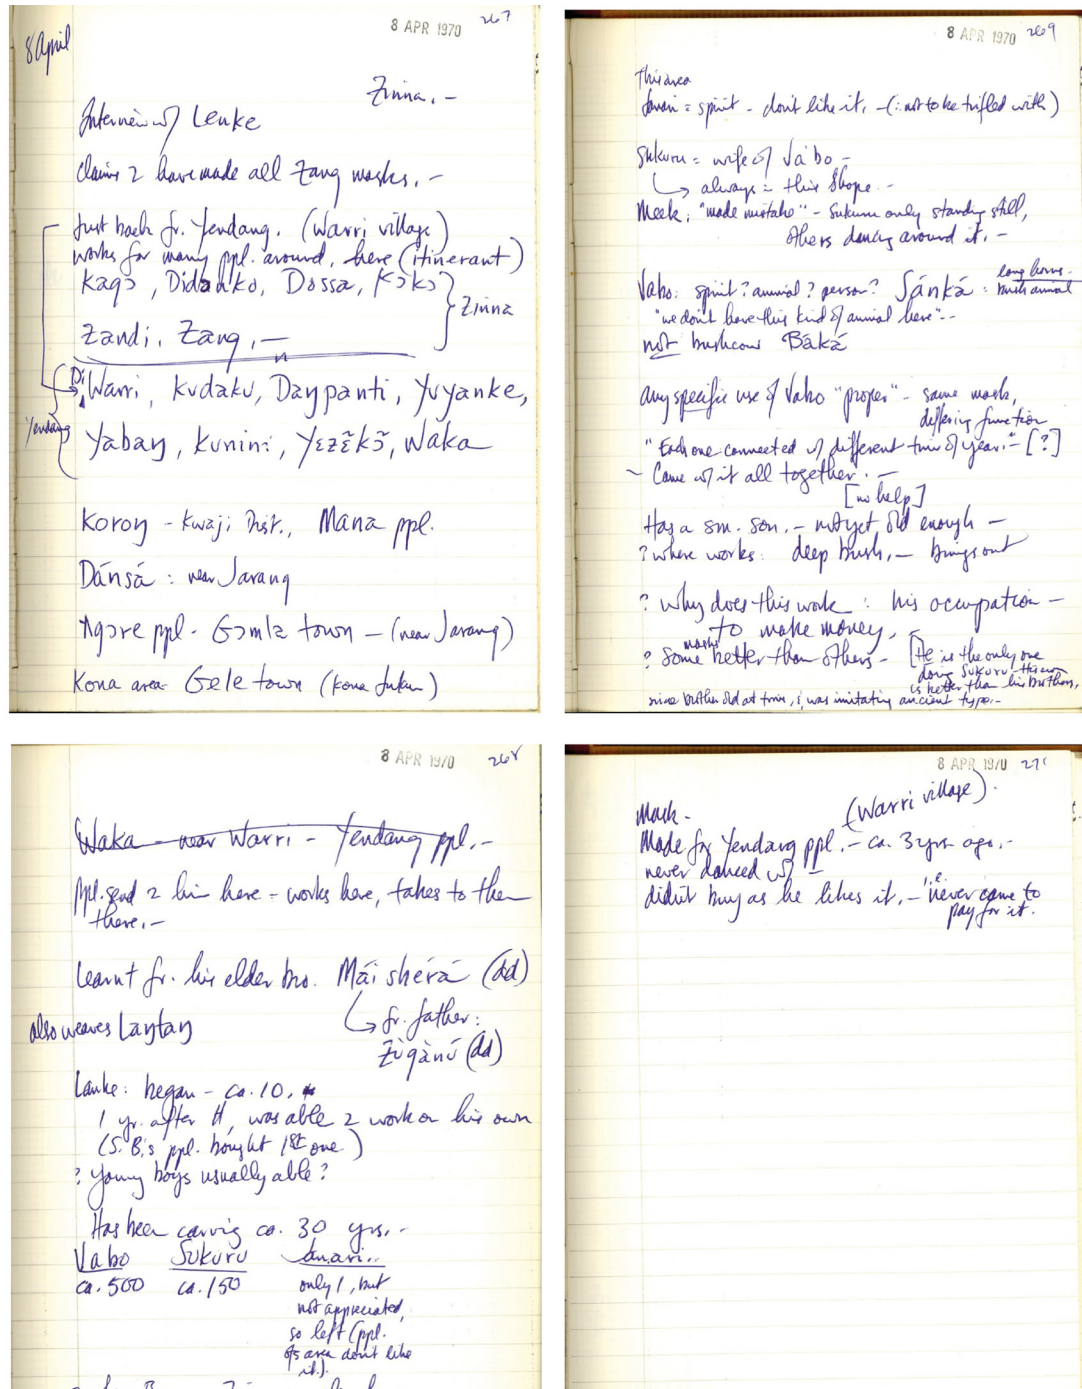 8 APR 1970 267
8 April
Zinna. -
Interview w/ Lenke
Claims 2 have made all Zang masks. -
Just back fr. Yendang. (Warri village)
works for many ppl. around, here (itinerant)
Kagɔ, Didanko, Dossa, Kɔkɔ
Zinna
Zandi, Zang. -
Di
Warri, Kudaku, Daŋpanti, Yuyanke,
Yendang
Yabaŋ, Kunini, Yɛzɛ̃kɔ̃, Waka
Koroŋ - Kwaji Dist., Mana ppl.
Dánsá : near Jarang
ppl - Gɔmlɛ town - (near Jarang)
Kona area - Gele town (Kona Jukun)
8 APR 1970 268
Waka - near Warri - Yendang ppl. -
Ppl. send 2 him here - works here, takes to them
there. -
Learnt fr. his elder bro. Mái shérá (dd)
also weaves Laŋtaŋ
fr. father:
Zùgànú (dd)
Lanke: began - ca. 10.
1 yr. after tt, was able 2 work on his own
(S.B.'s ppl. bought 1st one)
? Young boys usually able?
Has been carving ca. 30 yrs. -
Vabo Sukuru
ca. 500 ca. 150 only 1, but
not appreciated,
so left (ppl.
of area don't like
it).
8 APR 1970 269
This area
= spirit - don't like it. - (: not to be trifled with)
Sukuru = wife of Vabo -
always in this shape. -
Meek: "made mistake" - Sukuru only standing still,
others dancing around it. -
long horns -
Vabo: spirit? animal? person? Sánká : bush animal
"we don't have this kind of animal here" --
not bushcow Báká
any specific use of Vabo "proper" - same mask,
differing function
"Each one connected w/ different time of year" - [?]
~ Came w/ it all together. -
[no help]
Has a sm. son. - not yet old enough -
? where works: deep bush. - brings out
? Why does this work : his occupation -
to make money. -
masks
? Some better than others - [He is the only one
doing Sukuru - his own
is better than his brothers,
since brother did at time, i was imitating ancient type. -
8 APR 1970 27
(Warri village).
Mask -
Made for Yendang ppl. - ca. 3 yrs. ago. -
never danced w/ -
didn't buy as he likes it. - i.e. never came to
pay for it.